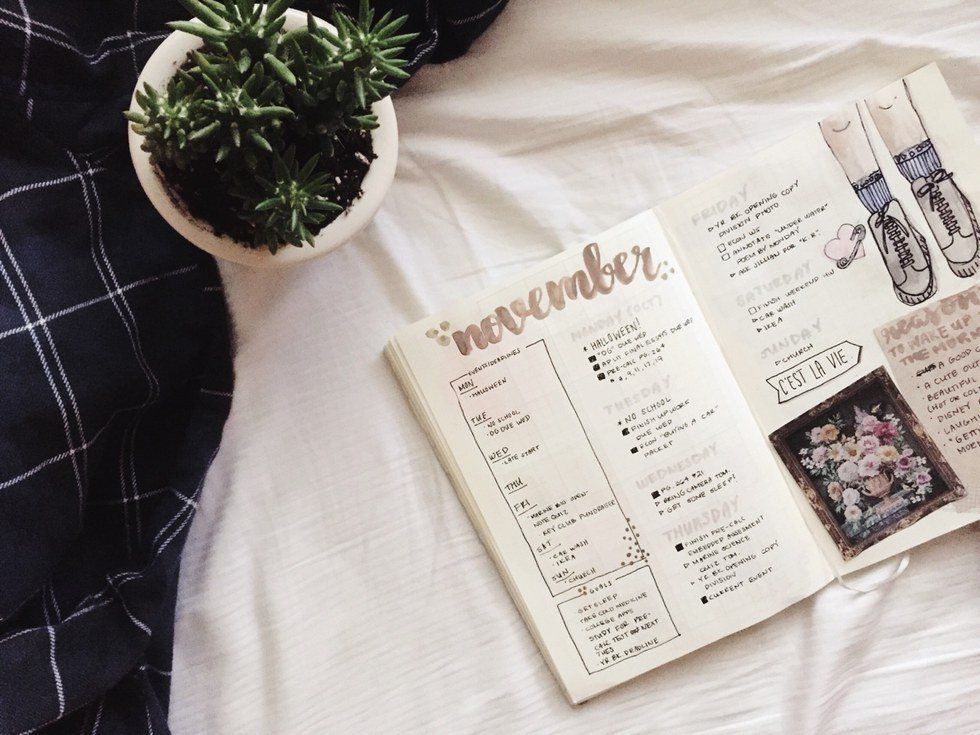 november
EVENTS/DEADLINES
MON
· HALLOWEEN
TUE
· NO SCHOOL
· OG DUE WED
WED
· LATE START
THU
FRI
· MARINE BIO OPEN
NOTE QUIZ
KEY CLUB FUNDRAISER
SAT
· CAR WASH
· IKEA
SUN
· CHURCH
GOALS
GET SLEEP
TAKE COLD MEDICINE
· COLLEGE APPS
STUDY FOR PRE-
CALC TEST NEXT
TUES
· YR BK DEADLINE
MONDAY (OCT)
* HALLOWEEN!
"OG" DUE WED
AP LIT FINAL ESSAYS DUE WED
PRE-CALC PG. 264
# 8, 9, 11, 17, 19
TUESDAY
* NO SCHOOL
FINISH UP WORK
DUE WED
ECON "BUYING A CAR"
PACKET
WEDNESDAY
PG. 264 #21
▷ BRING CAMERA TOM.
▷ GET SOME SLEEP!
THURSDAY
FINISH PRE-CALC
EMBEDDED ASSESSMENT
▷ MARINE SCIENCE
QUIZ TOM.
▷ YR BK OPENING COPY
DIVISION
CURRENT EVENT
FRIDAY
▷ YR BK OPENING COPY
DIVISION PHOTO
ECON WS
ANNOTATE "UNDER WATER"
POEM BY MONDAY
▷ ASK JILLIAN FOR "K.R."
SATURDAY
FINISH WEEKEND HW
▷ CAR WASH
▷ IKEA
SUNDAY
▷ CHURCH
C'EST LA VIE
TO WAKE UP
THE MOR
A GOOD
· A CUTE OUT
BEAUTIFUL
(HOT OR COL
· DISNEY
· LAUGH
· "GETT
MOR